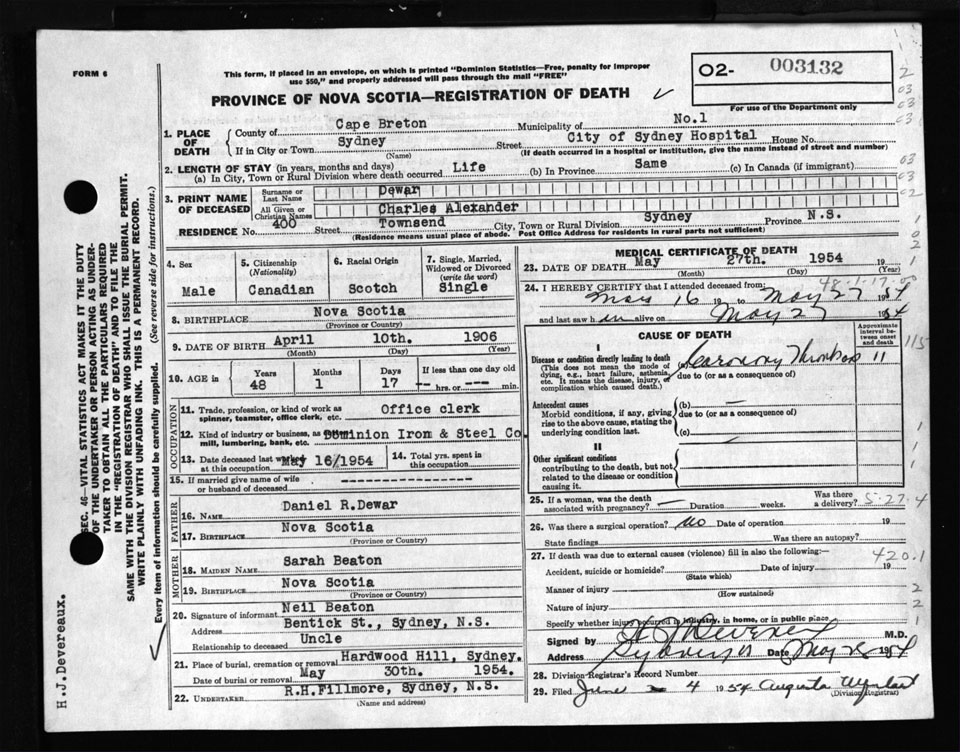 FORM 6
This form, if placed in an envelope, on which is printed "Dominion Statistics—Free, penalty for improper
use $50," and properly addressed will pass through the mail "FREE"
PROVINCE OF NOVA SCOTIA—REGISTRATION OF DEATH
02- 003132
For use of the Department only
1. PLACE OF DEATH County of Cape Breton Municipality of No.1
If in City or Town Sydney Street City of Sydney Hospital House No.
(Name) (If death occurred in a hospital or institution, give the name instead of street and number)
2. LENGTH OF STAY (in years, months and days)
(a) In City, Town or Rural Division where death occurred Life (b) In Province Same (c) In Canada (if immigrant)
3. PRINT NAME OF DECEASED Surname or Last Name Dewar
All Given or Christian Names Charles Alexander
RESIDENCE No. 400 Street Townsend City, Town or Rural Division Sydney Province N.S.
(Residence means usual place of abode. Post Office Address for residents in rural parts not sufficient)
4. Sex Male
5. Citizenship (Nationality) Canadian
6. Racial Origin Scotch
7. Single, Married, Widowed or Divorced (write the word) Single
8. BIRTHPLACE Nova Scotia
(Province or Country)
9. DATE OF BIRTH April 10th. 1906
(Month) (Day) (Year)
10. AGE in Years 48 Months 1 Days 17 If less than one day old -- hrs. or -- min.
OCCUPATION
11. Trade, profession, or kind of work as spinner, teamster, office clerk, etc. Office clerk
12. Kind of industry or business, as mill, lumbering, bank, etc. Dominion Irom & Steel Co.
13. Date deceased last worked at this occupation May 16/1954
14. Total yrs. spent in this occupation
15. If married give name of wife or husband of deceased ----------------
FATHER
16. NAME Daniel R.Dewar
17. BIRTHPLACE Nova Scotia
(Province or Country)
MOTHER
18. MAIDEN NAME Sarah Beaton
19. BIRTHPLACE Nova Scotia
(Province or Country)
20. Signature of informant Neil Beaton
Address Bentick St., Sydney, N.S.
Relationship to deceased Uncle
21. Place of burial, cremation or removal Hardwood Hill, Sydney.
Date of burial or removal May 30th. 1954.
22. UNDERTAKER R.H.Fillmore, Sydney, N.S.
(Name and address)
MEDICAL CERTIFICATE OF DEATH
23. DATE OF DEATH May 27th. 1954
(Month) (Day) (Year)
24. I HEREBY CERTIFY that I attended deceased from:
May 16 19 to May 27 1954
and last saw h im alive on May 27 1954
CAUSE OF DEATH
Approximate interval between onset and death
I
Disease or condition directly leading to death
(This does not mean the mode of dying, e.g., heart failure, asthenia, etc. It means the disease, injury, or complication which caused death.)
(a) Coronary Thrombosis 11
due to (or as a consequence of)
Antecedent causes
Morbid conditions, if any, giving rise to the above cause, stating the underlying condition last.
(b) —
due to (or as a consequence of)
(c)
II
Other significant conditions
contributing to the death, but not related to the disease or condition causing it.
25. If a woman, was the death associated with pregnancy? — Duration weeks. Was there a delivery?
5-27-4
26. Was there a surgical operation? no Date of operation 19
State findings Was there an autopsy?
27. If death was due to external causes (violence) fill in also the following:—
420.1
Accident, suicide or homicide? Date of injury 19
(State which)
Manner of injury
(How sustained)
Nature of injury
Specify whether injury occurred in industry, in home, or in public place
Signed by M.D.
Address Sydney NS Date May 28 1954
28. Division-Registrar's Record Number
29. Filed June 4 1954 Augusta
(Division Registrar)
SEC. 46—VITAL STATISTICS ACT MAKES IT THE DUTY
OF THE UNDERTAKER OR PERSON ACTING AS UNDER-
TAKER TO OBTAIN ALL THE PARTICULARS REQUIRED
IN THE "REGISTRATION OF DEATH" AND TO FILE THE
SAME WITH THE DIVISION REGISTRAR WHO SHALL ISSUE THE BURIAL PERMIT.
WRITE PLAINLY WITH UNFADING INK. THIS IS A PERMANENT RECORD.
Every item of information should be carefully supplied. (See reverse side for instructions.)
H.J.Devereaux.